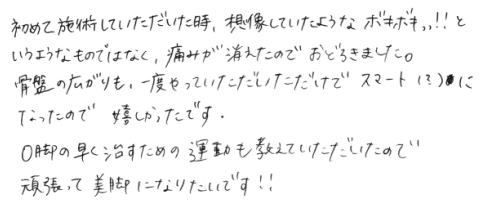 初めて施術していただいた時、想像していたような ボキボキッ!! と
いうようなものではなく、痛みが消えたので おどろきました。
骨盤の広がりも、一度やっていただいただけで スマート(?)に
なったので 嬉しかったです。
O脚の早く治すための 運動も教えていただいたので
頑張って 美脚になりたいです!!